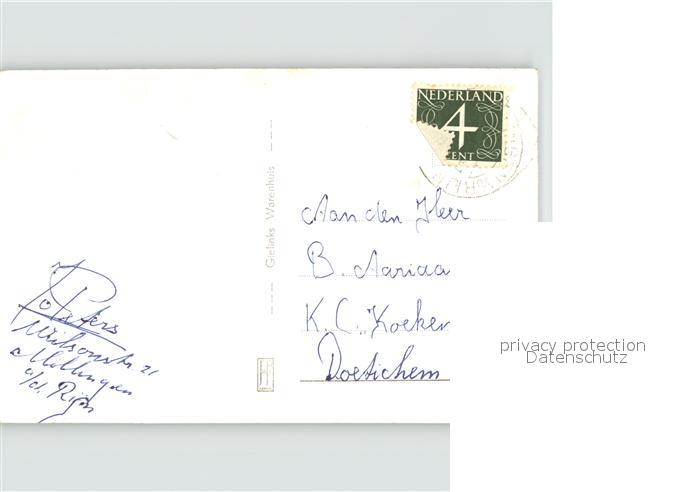 NEDERLAND
4
CENT
Gielinks Warenhuis
Aan den Heer
B. Aariaa
K. C. Koeker
Doetichem
Jo Peters
Wilsonstr. 21
a/d. Rijn
privacy protection
Datenschutz